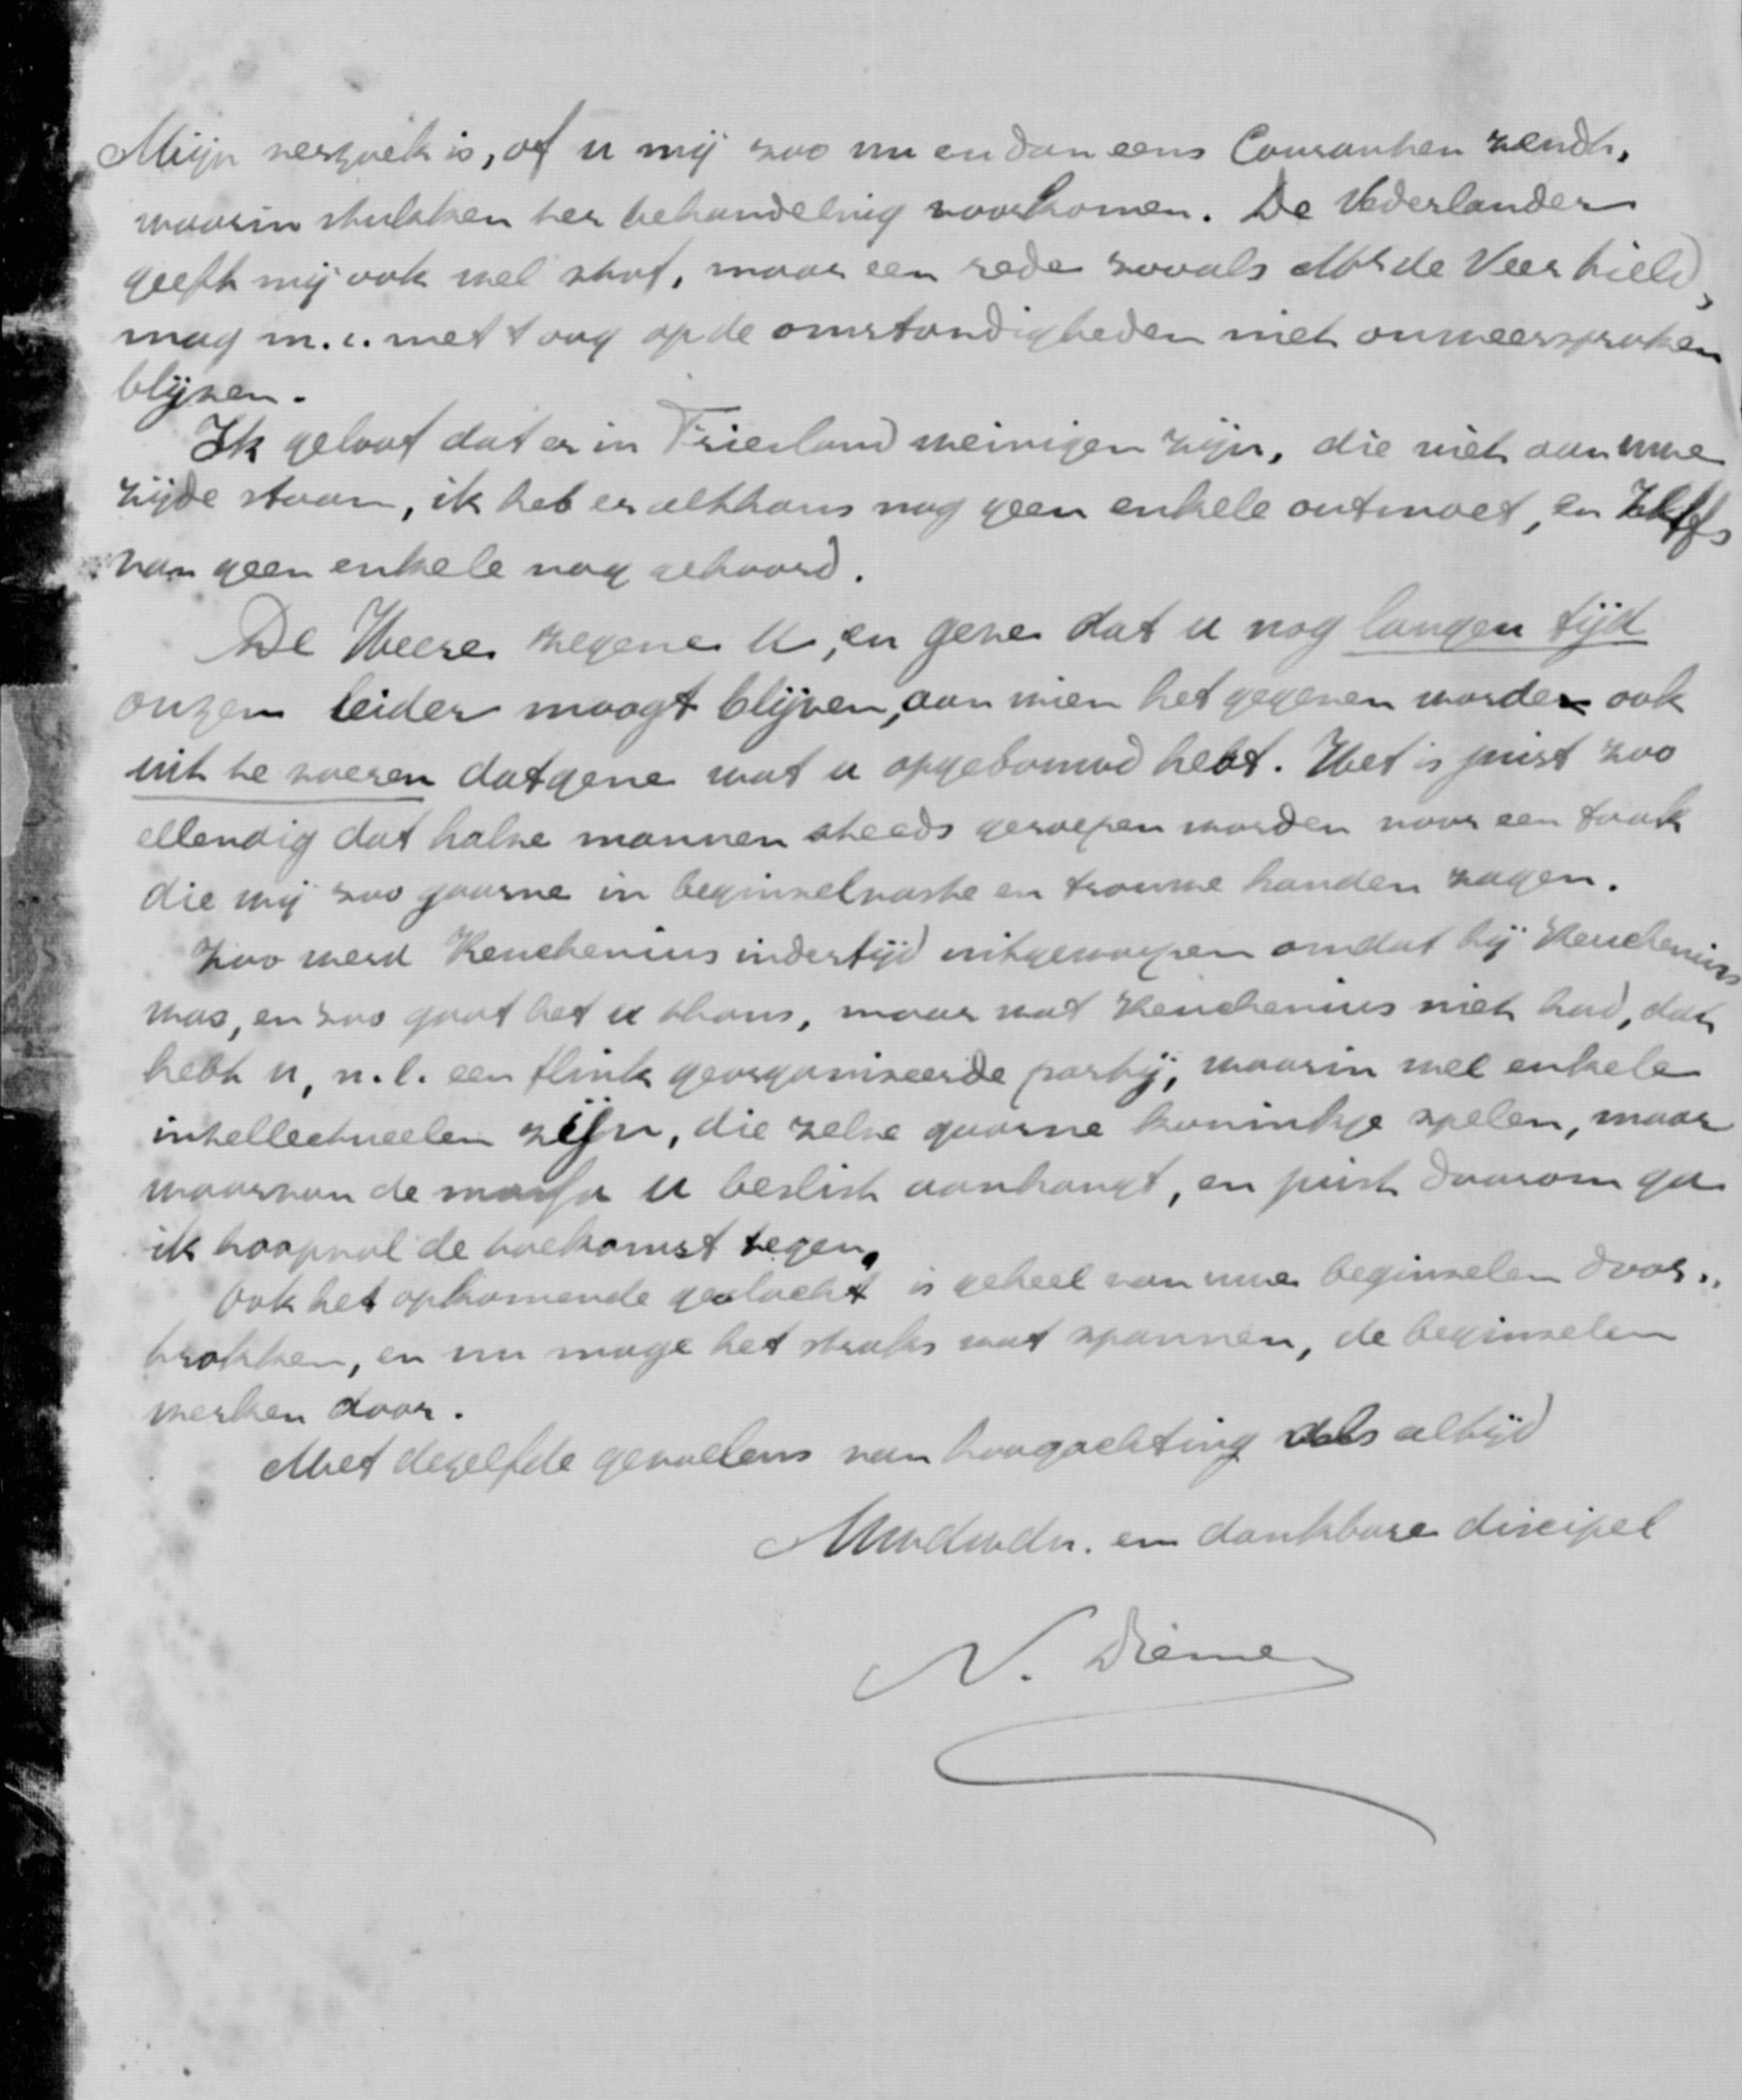 Mijn verzoek is, of u mij zoo nu en dan eens Couranten zendt,
waarin stukken ter behandeling voorkomen. De Nederlander
geeft mij ook wel stof, maar een rede zooals Mr de Veer hield,
mag m.i. met 't oog op de omstandigheden niet onweersproken
blijven.
Ik geloof dat er in Friesland weinigen zijn, die niet aan uwe
zijde staan, ik heb er althans nog geen enkele ontmoet, en zelfs
van geen enkele nog gehoord.
De Heere zegene U, en geve dat u nog langen tijd
onzen leider moogt blijven, aan wien het gegeven worde ook
uit te voeren datgene wat u opgebouwd hebt. Het is juist zoo
ellendig dat halve mannen steeds geroepen worden voor een taak
die wij zoo gaarne in beginselvaste en trouwe handen zagen.
Zoo werd Keuchenius indertijd uitgeworpen omdat hij Keuchenius
was, en zoo gaat het u thans, maar wat Keuchenius niet had, dat
hebt u, n.l. een flink georganiseerde partij, waarin wel enkele
intellectueelen zijn, die zelve gaarne koninkje spelen, maar
waarvan de massa u beslist aanhangt, en juist daarom ga
ik hoopvol de toekomst tegen.
Ook het opkomende geslacht is geheel van uwe beginselen door„
trokken, en nu moge het straks wat spannen, de beginselen
werken door.
Met dezelfde gevoelens van hoogachting als altijd
en dankbare discipel
N. Diemer